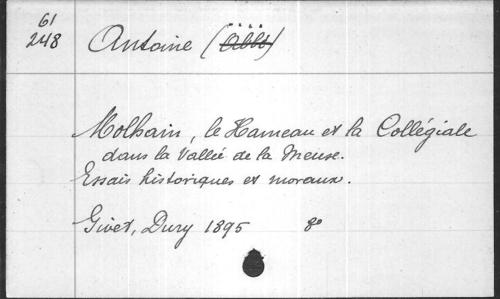 61
248
Antoine (Abbé)
Molhain, le Hameau et la Collégiale
dans la Vallée de la Meuse.
Essais historiques et moraux.
Givet, Dury 1895 8°